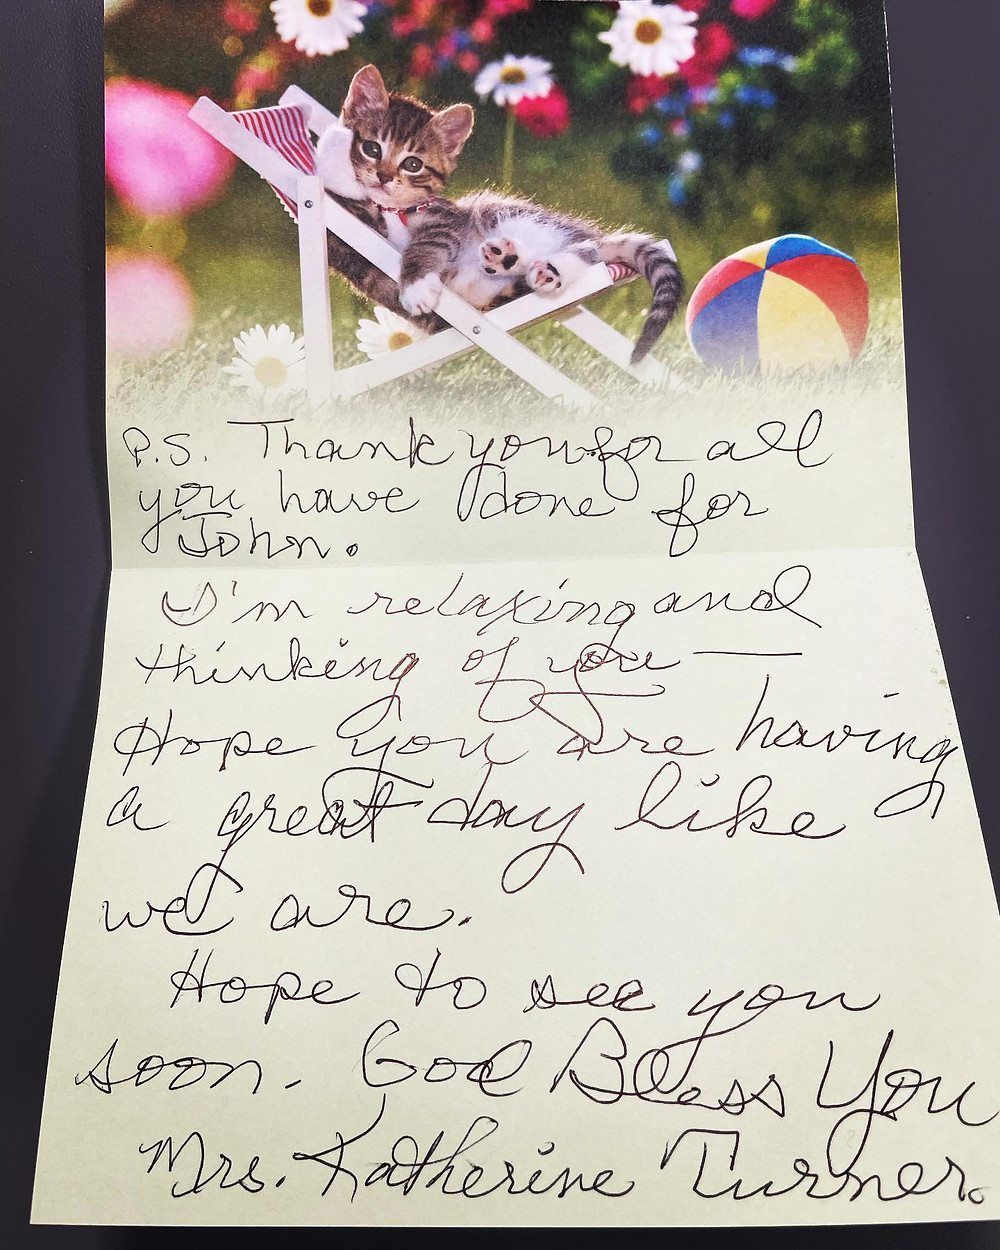 P.S. Thank you for all
you have done for
John.
I'm relaxing and
thinking of you —
Hope you are having
a great day like
we are.
Hope to see you
soon. God Bless You
Mrs. Katherine Turner.